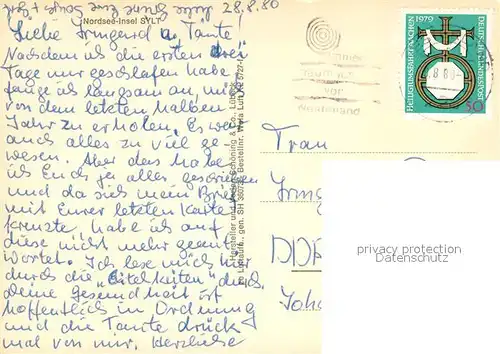 28.8.80
Nordsee-Insel SYLT
Liebe Irmgard u. Tante!
Nachdem ich die ersten drei
Tage nur geschlafen habe
fange ich langsam an, mich
von dem letzten halben
Jahr zu erholen. Es war
auch alles zu viel ge-
wesen. Aber das habe
ich Euch ja alles geschrieben
und da sich mein Brief
mit Eurer letzten Karte
kreuzte, habe ich auf
diese nicht mehr geant-
wortet. Ich lese mich hier
durch die "Eitelkeiten" durch,
Deine Gesundheit ist
hoffentlich in Ordnung
und die Tante drück
mal von mir. Herzliche
Hersteller und Verlag Schöning & Co., Lübeck
gen. SH Bestellnr.
vor
1979
HEILIGTUMSFAHRT AACHEN
DEUTSCHE BUNDESPOST
50
.8.80-
Frau
Irmg
DDR
Joha
privacy protection
Datenschutz